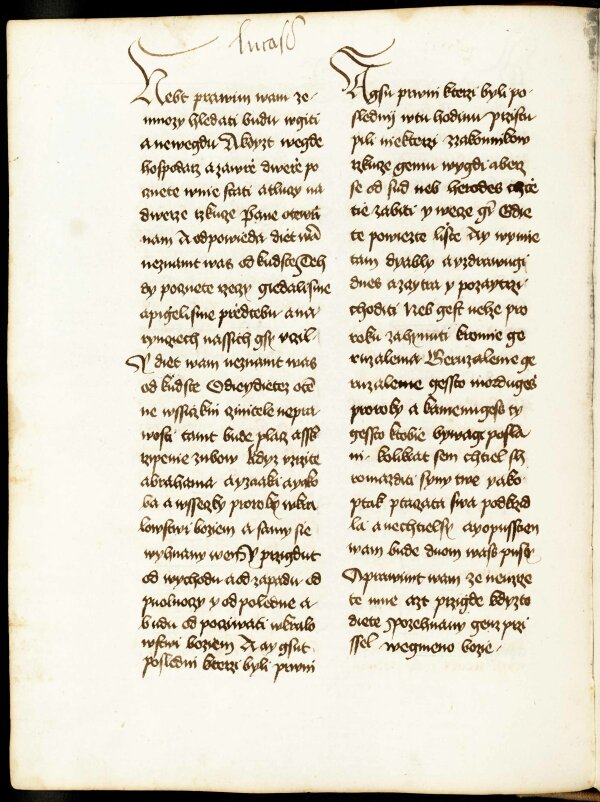 lucass
Nebt prawim wam ze
mnozy hledati budu wgiti
a newegdu A kdyzt wegde
hospodarz a zawrze dwerze po
cznete wnie stati a tluczy na
dwerze rzkuze Pane otewrzi
nam A odpowieda diet wam
neznamt was od kud ste Teh
dy pocznete rzeczy giedali sme
a pigeli sme przed tebu a na
rynczech nassich gsy vczil
Y diet wam neznamt was
od kud ste Odeyd ietez ote mne
ne wssiczkni czinitele nepra
wosti tamt bude placz a sskrz
zipenie zubow kdyz vzrzite
abrahama a yzaaka a yako
ba a wsseczky proroky w kra
lowstwi bozem a samy sie
wyhnany wen Y przigdut
od wychodu a od zapadu od
puolnoczy y od poledne a
budu od pocziwati w kralow
wstwi boziem A ay gsut
poslední kterzi byli prwni
A gsu prwni kterzi byli po
sledni w tu hodinu przistu
pili niekterzi z zakonnikow
rzkuze gemu wygdi a berz
se od sud neb herodes chcze
tie zabiti y wecze gim Gdie
te powiezte lisce Ay wymie
tam dyably a vzdrawugi
dnes a zaytra y pozaytrzi
choditi Neb gest nelze pro
roku zahynuti kromie ge
ruzalema Geruzaleme ge
ruzaleme gessto mordugess
proroky a kamenugess ty
gessto k tobie bywagi posla
ni kolikrat sem chtiel sh
romazditi syny twe yako
ptak ptaczata swa pod krzid
la a nechtiel sy ay opusstien
wam bude duom wass pusty
A prawimt wam ze neuzrze
te mne azt przigde kdyzto
diete Pozehnany genz przi
ssel we gmeno bozie